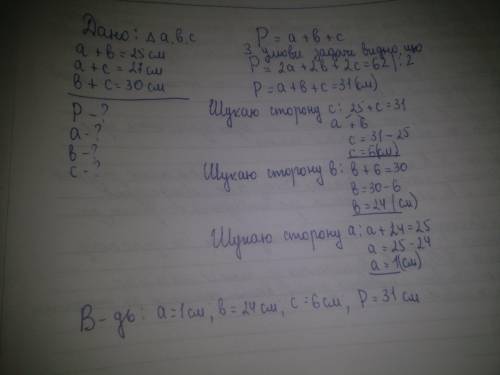 Дано: Δ а, в, с
а + в = 25 см
а + с = 27 см
в + с = 30 см
Р - ?
а - ?
в - ?
с - ?
Р = а + в + с
З умови задачі видно, що
Р = 2а + 2в + 2с = 62 | : 2
Р = а + в + с = 31 (см)
Шукаю сторону с: 25 + с = 31
а + в
с = 31 - 25
с = 6 (см)
Шукаю сторону в: в + 6 = 30
в = 30 - 6
в = 24 (см)
Шукаю сторону а: а + 24 = 25
а = 25 - 24
а = 1 (см)
В-дь: а = 1 см, в = 24 см, с = 6 см, Р = 31 см